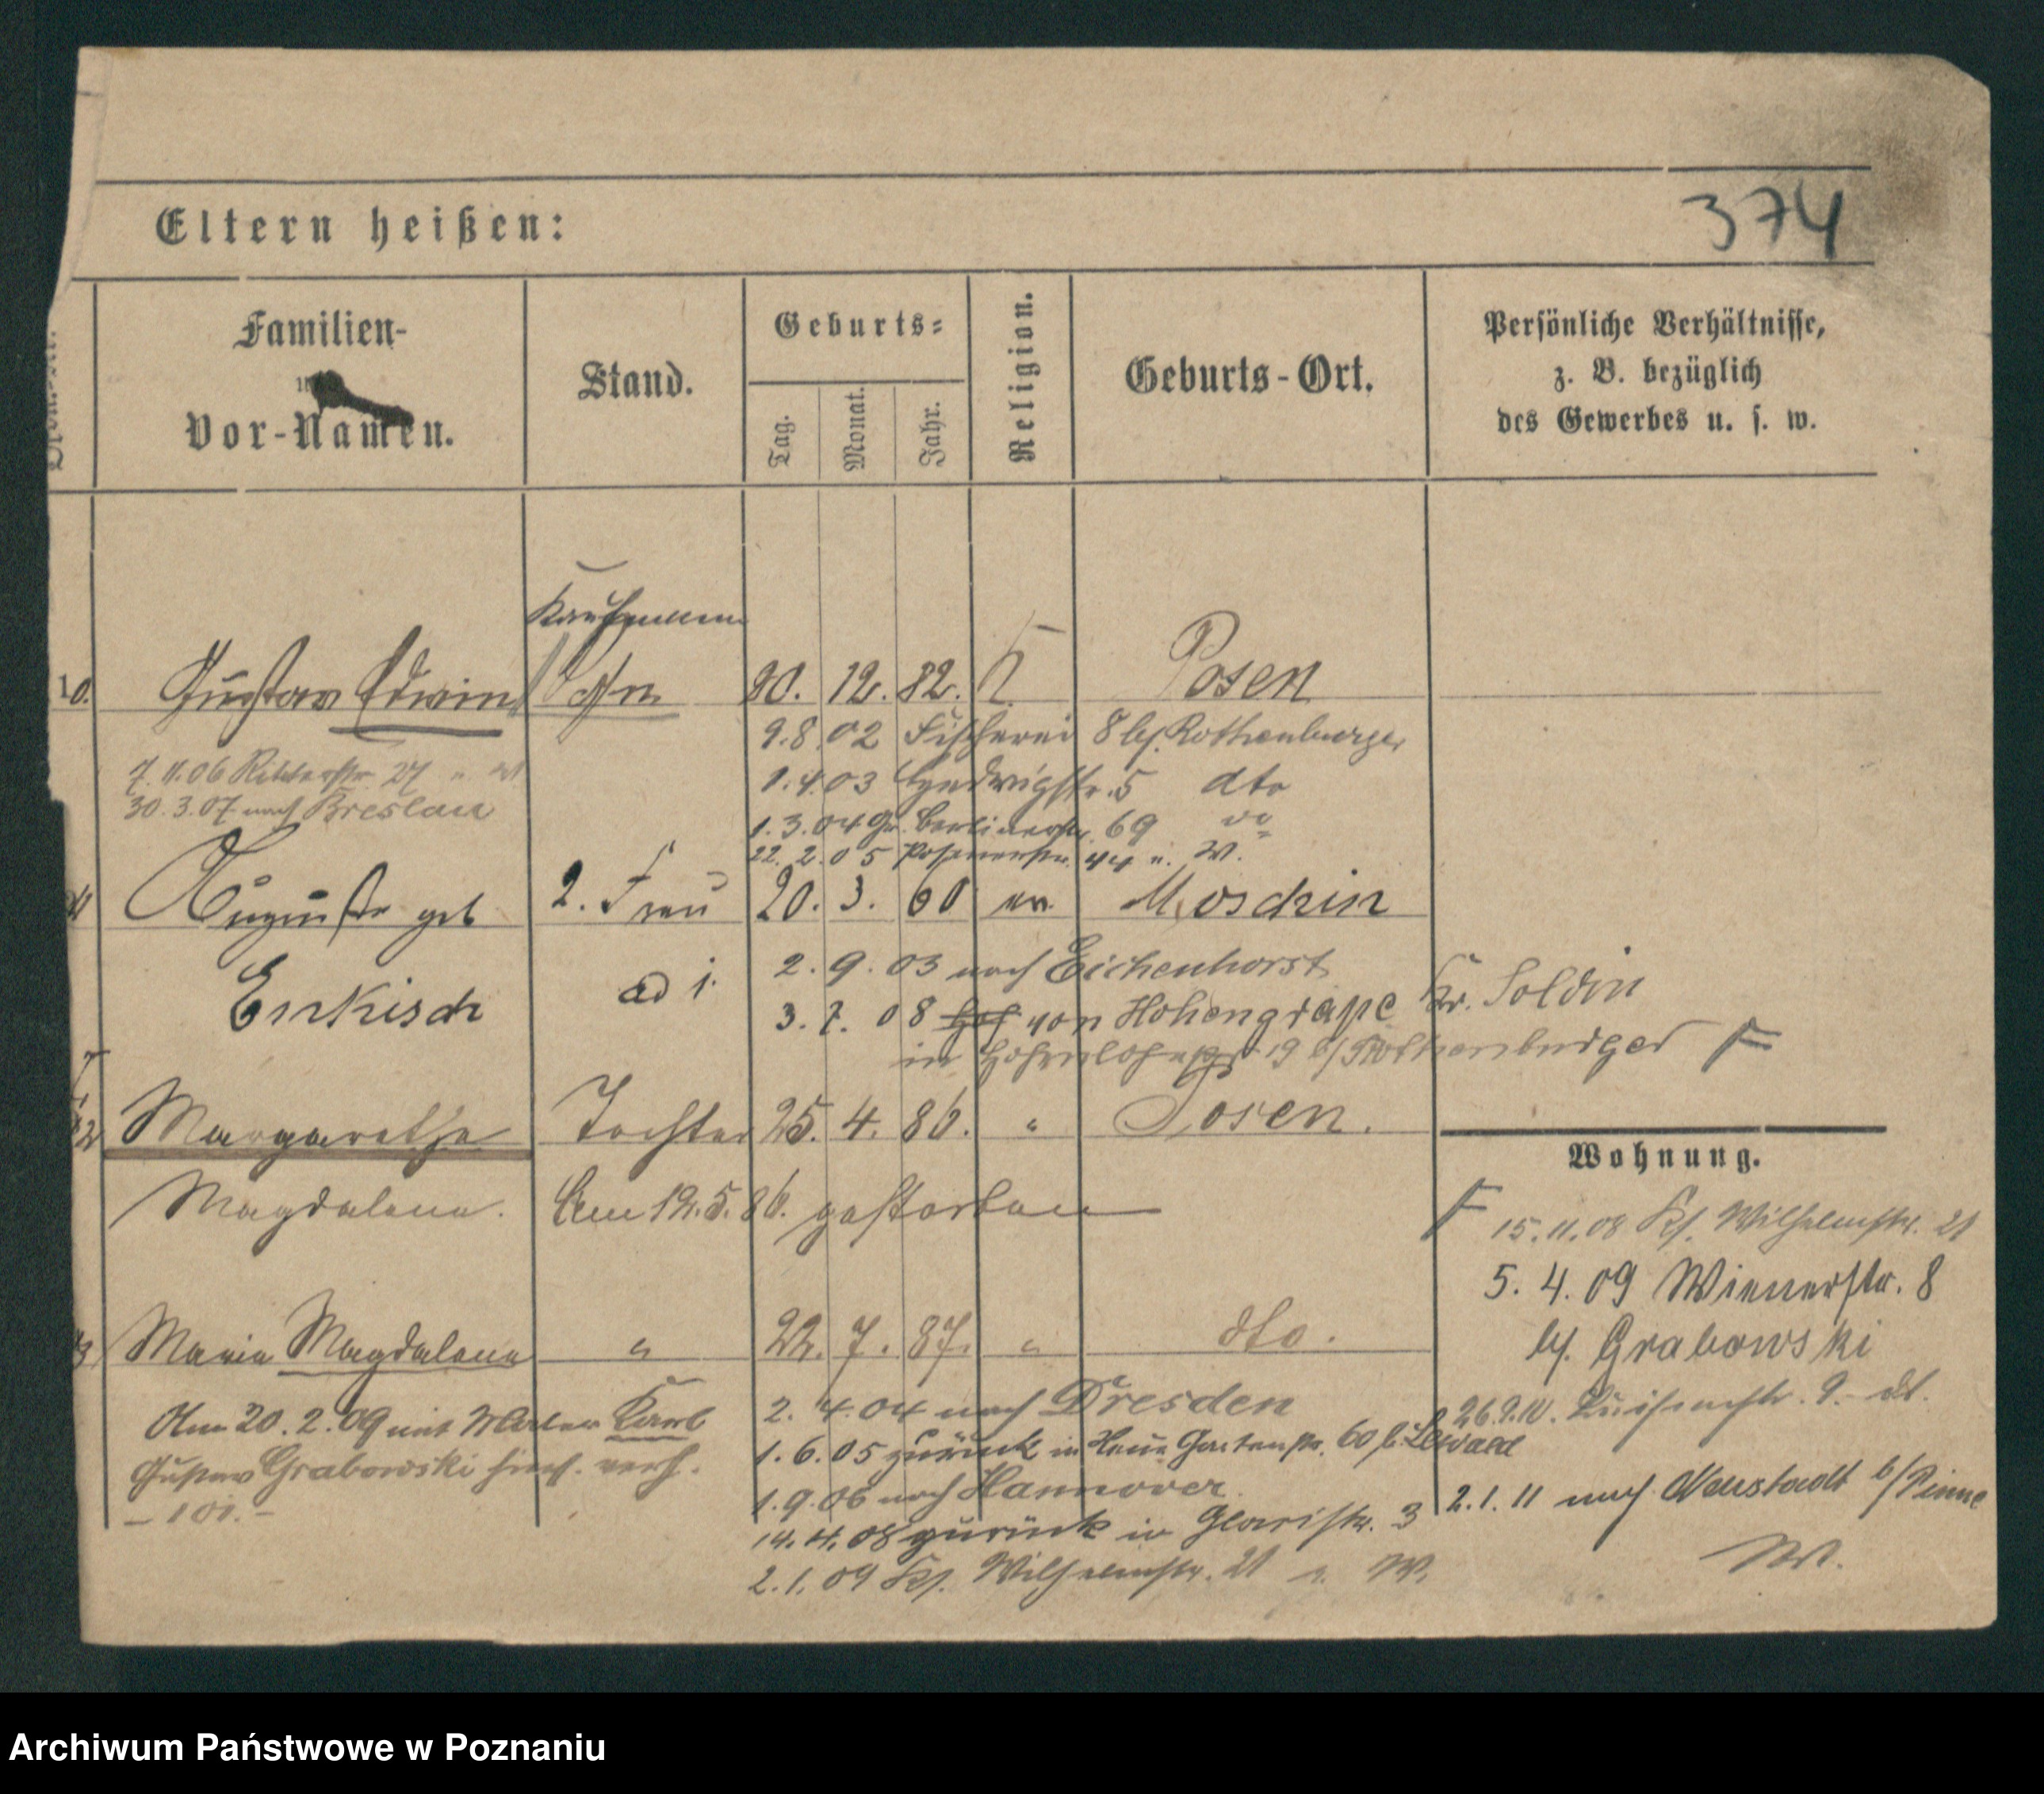 374
Eltern heißen:
Familien-
und
Vor-Namen.
Stand.
Geburts-
Tag.
Monat.
Jahr.
Religion.
Geburts-Ort.
Persönliche Verhältnisse,
z. B. bezüglich
des Gewerbes u. s. w.
Kaufmann
10. Gustav Edwin Sohn 12. 82. Posen
9.8.02 Fischerei 8 bf. Rothenburger
1.4.03 Hedwigstr. 5 dto
1.3.04 Gr. Berlinerstr. 69 do
22.2.05 Posenerstr. 44 u. W.
7.11.06 Ritterstr. 27 " W
30.3.07 nach Breslau
Auguste geb 2. Frau 20. 3. 60 ev. Moschin
Enkisch ad 1.
2.9.03 nach Eichenhorst
3.7.08 von Hohengrape Kr. Soldin
in Hohenlohestr 19 b/ Rothenburger F
Margarethe Tochter 25. 4. 86. " Posen.
Magdalena. Am 12.5.86. gestorben
Maria Magdalena " 22. 7. 87. " dto.
Am 20.2.09 mit Maler Karl
Gustav Grabowski hier. verh.
– 101. –
2.4.04 nach Dresden
1.6.05 zurück in Neue Gartenstr. 60 b. Lewald
1.9.06 nach Hannover.
14.4.08 zurück in 3
2.1.09 Wilhelmstr. 21 W.
Wohnung.
F 15.11.08 Wilhelmstr. 21
5.4.09 Wienerstr. 8
bf. Grabowski
26.9.10. Luisenstr. 9.
2.1.11 nach Neustadt b/Pinne
W.
Archiwum Państwowe w Poznaniu